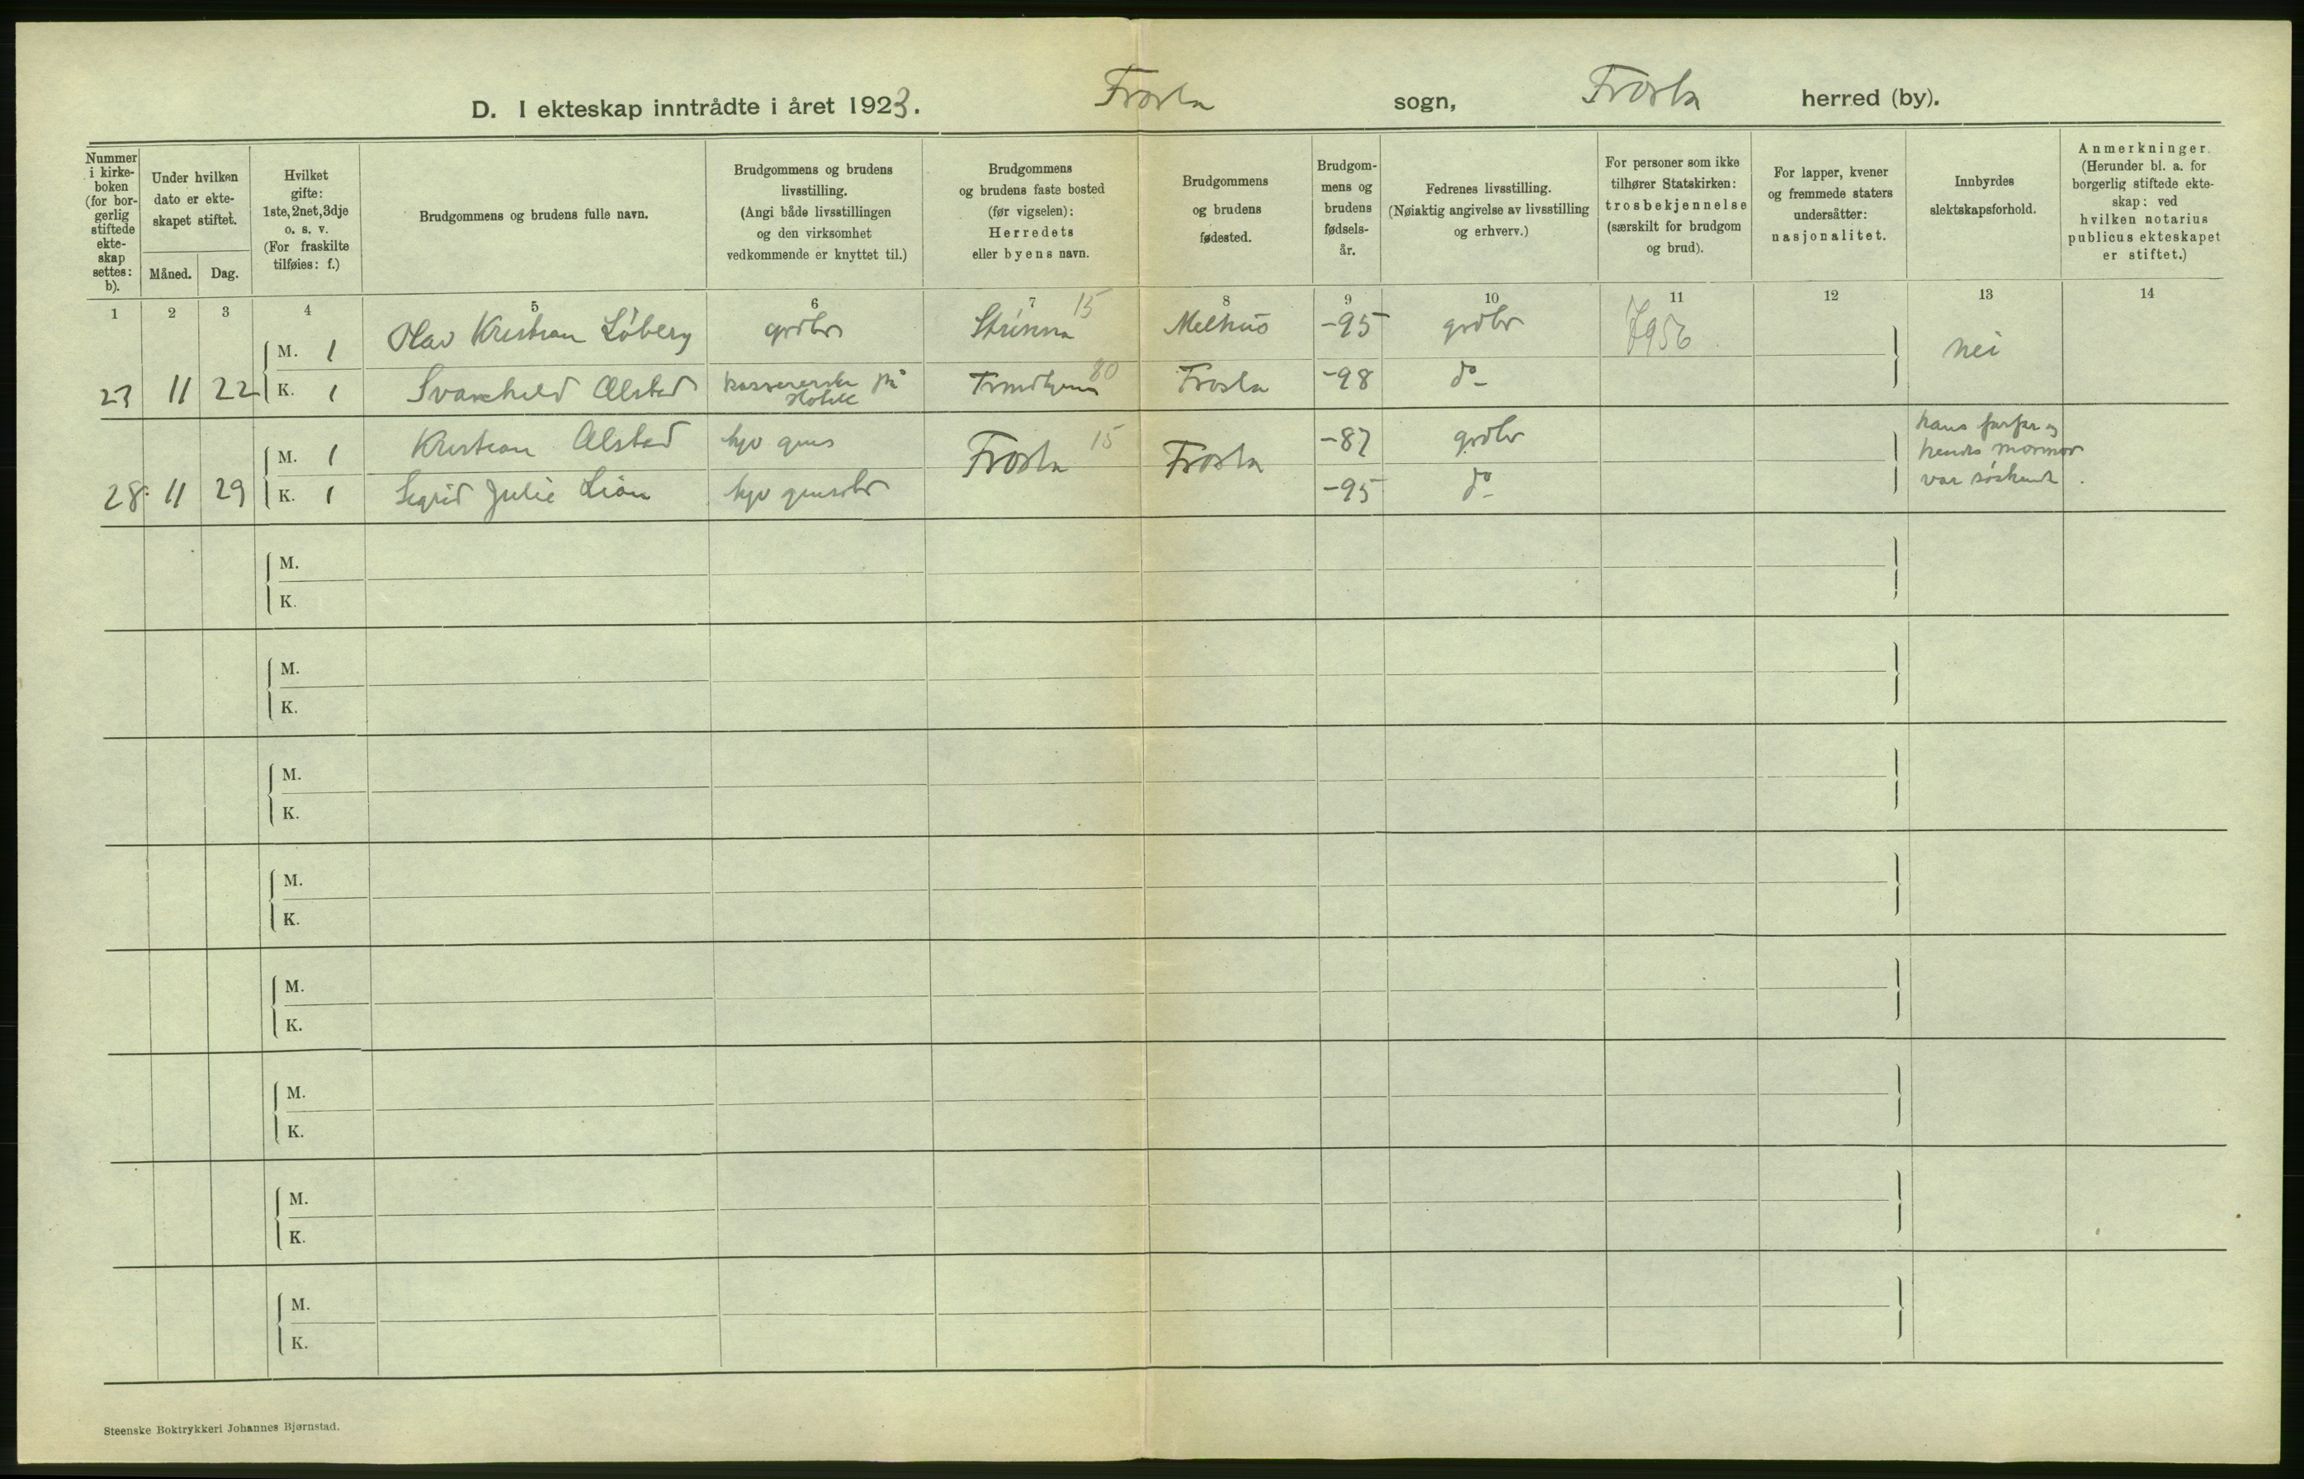 D. I ekteskap inntrådte i året 1923. Frosta sogn, Frosta herred (by).
Nummer i kirkeboken (for borgerlig stiftede ekteskap settes: b).
Under hvilken dato er ekteskapet stiftet.
Måned. Dag.
Hvilket gifte: 1ste, 2net, 3dje o. s. v. (For fraskilte tilføies: f.)
Brudgommens og brudens fulle navn.
Brudgommens og brudens livsstilling. (Angi både livsstillingen og den virksomhet vedkommende er knyttet til.)
Brudgommens og brudens faste bosted (før vigselen): Herredets eller byens navn.
Brudgommens og brudens fødested.
Brudgommens og brudens fødselsår.
Fedrenes livsstilling. (Nøiaktig angivelse av livsstilling og erhverv.)
For personer som ikke tilhører Statskirken: trosbekjennelse (særskilt for brudgom og brud).
For lapper, kvener og fremmede staters undersåtter: nasjonalitet.
Innbyrdes slektskapsforhold.
Anmerkninger. (Herunder bl. a. for borgerlig stiftede ekteskap: ved hvilken notarius publicus ekteskapet er stiftet.)
1 2 3 4 5 6 7 8 9 10 11 12 13 14
M. 1 Olav Kristian Löberg grdbr Strinna 15 Melhus -95 grdbr 7956 nei
23 11 22 K. 1 Svanhild Alstad kassererske på Hotell Trondhjem 80 Frosta -98 do
M. 1 Kristian Alstad hjv gms Frosta 15 Frosta -87 grdbr hans farfar og hendes mormor var søskende
28 11 29 K. 1 Sigrid Julie Lian hjv -95 do
M.
K.
M.
K.
M.
K.
M.
K.
M.
K.
M.
K.
M.
K.
M.
K.
Steenske Boktrykkeri Johannes Bjørnstad.